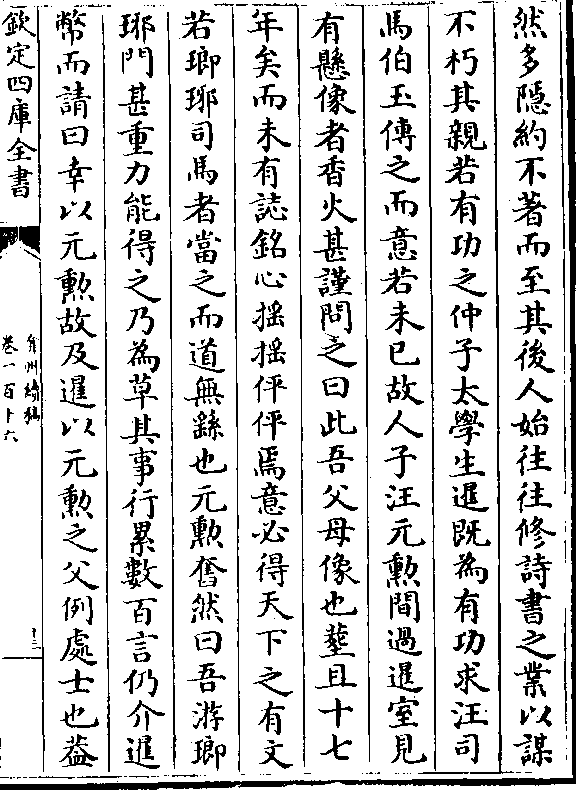 然多隱約不著而至其後人始往往修詩書之業以謀
不朽其親若有功之仲子太學生暹既為有功求汪司
馬伯玉傳之而意若未已故人子汪元勲間過暹室見
有懸像者香火甚謹問之曰此吾父母像也塟且十七
年矣而未有誌銘心搖搖伻伻焉意必得天下之有文
若瑯琊司馬者當之而道無繇也元勲奮然曰吾游瑯
琊門甚重力能得之乃為草其事行累數百言仍介暹
幣而請曰幸以元勲故及暹以元勲之父例處士也葢
欽定四庫全書
弇州續稿
卷一百十六
十三